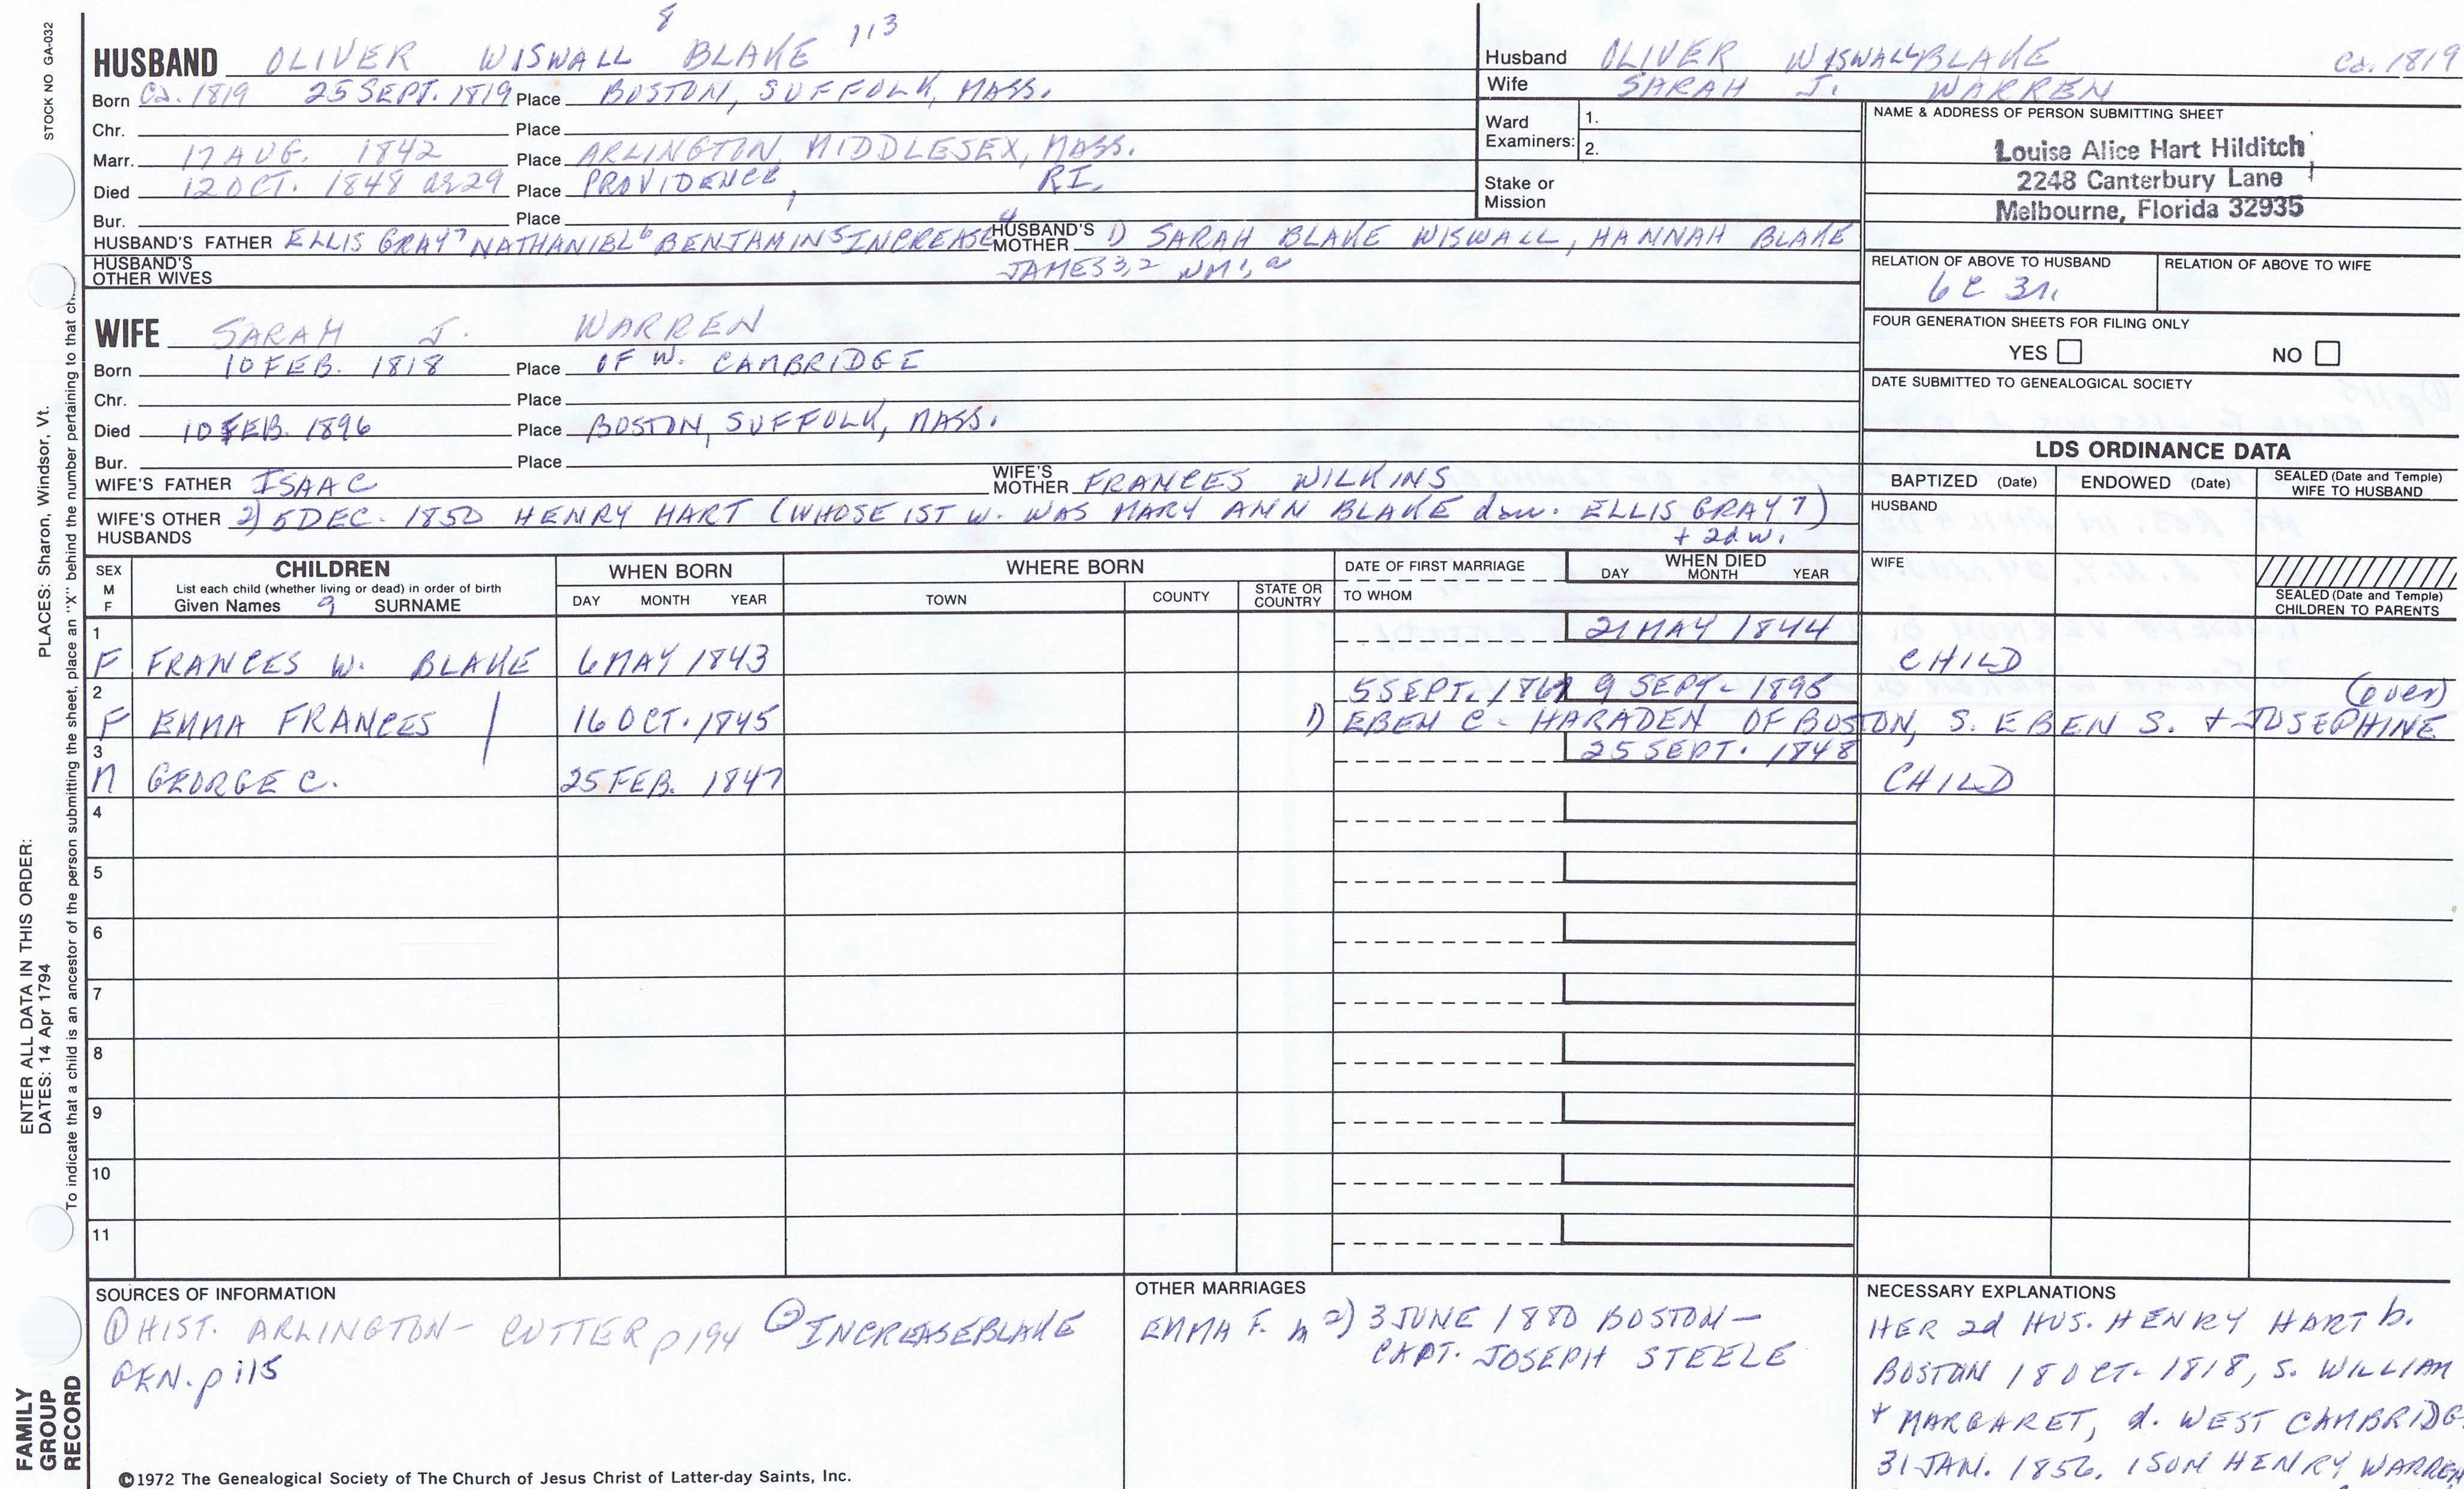 STOCK NO GA-032
8 113
HUSBAND OLIVER WISWALL BLAKE
Born Ca. 1819 25 SEPT. 1819 Place BOSTON, SUFFOLK, MASS.
Chr. Place
Marr. 17 AUG. 1842 Place ARLINGTON, MIDDLESEX, MASS.
Died 12 OCT. 1848 ae 29 Place PROVIDENCE, RI.
Bur. Place
HUSBAND'S FATHER ELLIS GRAY7 NATHANIEL6 BENJAMIN5 INCREASE4 HUSBAND'S MOTHER 1) SARAH BLAKE WISWALL, HANNAH BLAKE
HUSBAND'S OTHER WIVES JAMES 3,2 WM1, a
Husband OLIVER WISWALL BLAKE Ca. 1819
Wife SARAH J. WARREN
Ward Examiners: 1.
2.
Stake or Mission
NAME & ADDRESS OF PERSON SUBMITTING SHEET
Louise Alice Hart Hilditch
2248 Canterbury Lane
Melbourne, Florida 32935
RELATION OF ABOVE TO HUSBAND RELATION OF ABOVE TO WIFE
6C 3r.
FOUR GENERATION SHEETS FOR FILING ONLY
YES NO
DATE SUBMITTED TO GENEALOGICAL SOCIETY
WIFE SARAH J. WARREN
Born 10 FEB. 1818 Place OF W. CAMBRIDGE
Chr. Place
Died 10 FEB. 1896 Place BOSTON, SUFFOLK, MASS.
Bur. Place
WIFE'S FATHER ISAAC WIFE'S MOTHER FRANCES WILKINS
WIFE'S OTHER HUSBANDS 2) 5 DEC. 1850 HENRY HART (WHOSE 1ST W. WAS MARY ANN BLAKE dau. ELLIS GRAY7)
+ 2d w.
LDS ORDINANCE DATA
BAPTIZED (Date) ENDOWED (Date) SEALED (Date and Temple) WIFE TO HUSBAND
HUSBAND
WIFE
SEALED (Date and Temple) CHILDREN TO PARENTS
SEX M F
CHILDREN
List each child (whether living or dead) in order of birth
Given Names 9 SURNAME
WHEN BORN
DAY MONTH YEAR
WHERE BORN
TOWN COUNTY STATE OR COUNTRY
DATE OF FIRST MARRIAGE
TO WHOM
WHEN DIED
DAY MONTH YEAR
1 21 MAY 1844
F FRANCES W. BLAKE 6 MAY 1843 CHILD
2 5 SEPT. 1867 9 SEPT. 1895 (over)
F EMMA FRANCES 16 OCT. 1845 1) EBEN C. HARADEN OF BOSTON, S. EBEN S. + JOSEPHINE
3 25 SEPT. 1848
M GEORGE C. 25 FEB. 1847 CHILD
4
5
6
7
8
9
10
11
SOURCES OF INFORMATION
① HIST. ARLINGTON - CUTTER p 194 ② INCREASE BLAKE
GEN. p 115
OTHER MARRIAGES
EMMA F. m 2) 3 JUNE 1880 BOSTON -
CAPT. JOSEPH STEELE
NECESSARY EXPLANATIONS
HER 2d HUS. HENRY HART b.
BOSTON 18 OCT. 1818, S. WILLIAM
+ MARGARET, d. WEST CAMBRIDG
31 JAN. 1856. 1 SON HENRY WARREN
©1972 The Genealogical Society of The Church of Jesus Christ of Latter-day Saints, Inc.
FAMILY GROUP RECORD
ENTER ALL DATA IN THIS ORDER:
DATES: 14 Apr 1794
PLACES: Sharon, Windsor, Vt.
To indicate that a child is an ancestor of the person submitting the sheet, place an "X" behind the number pertaining to that ch